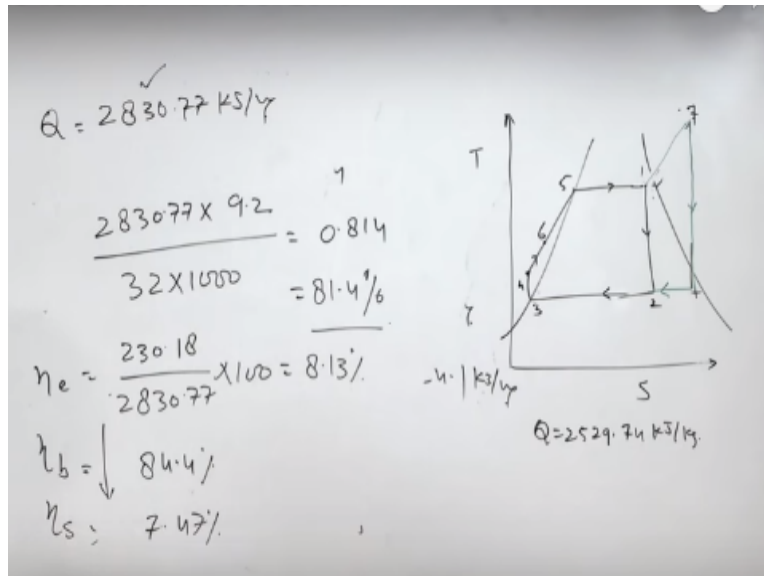 Q = 2830.77 KJ/kg
2830.77 X 9.2
32 X 1000
= 0.814
= 81.4%
ηe = 230.18
2830.77
X100 = 8.13%
ηb = 84.4%
ηs = 7.47%
T
7
5
1
6
4
3
2
S
Q=2529.74 KJ/kg.